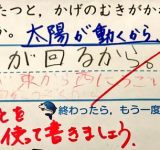 たつと、かげのむきがか
か。太陽が動くから、
が回るから。
終わったら、もう一度
とを
使って書きましょう。